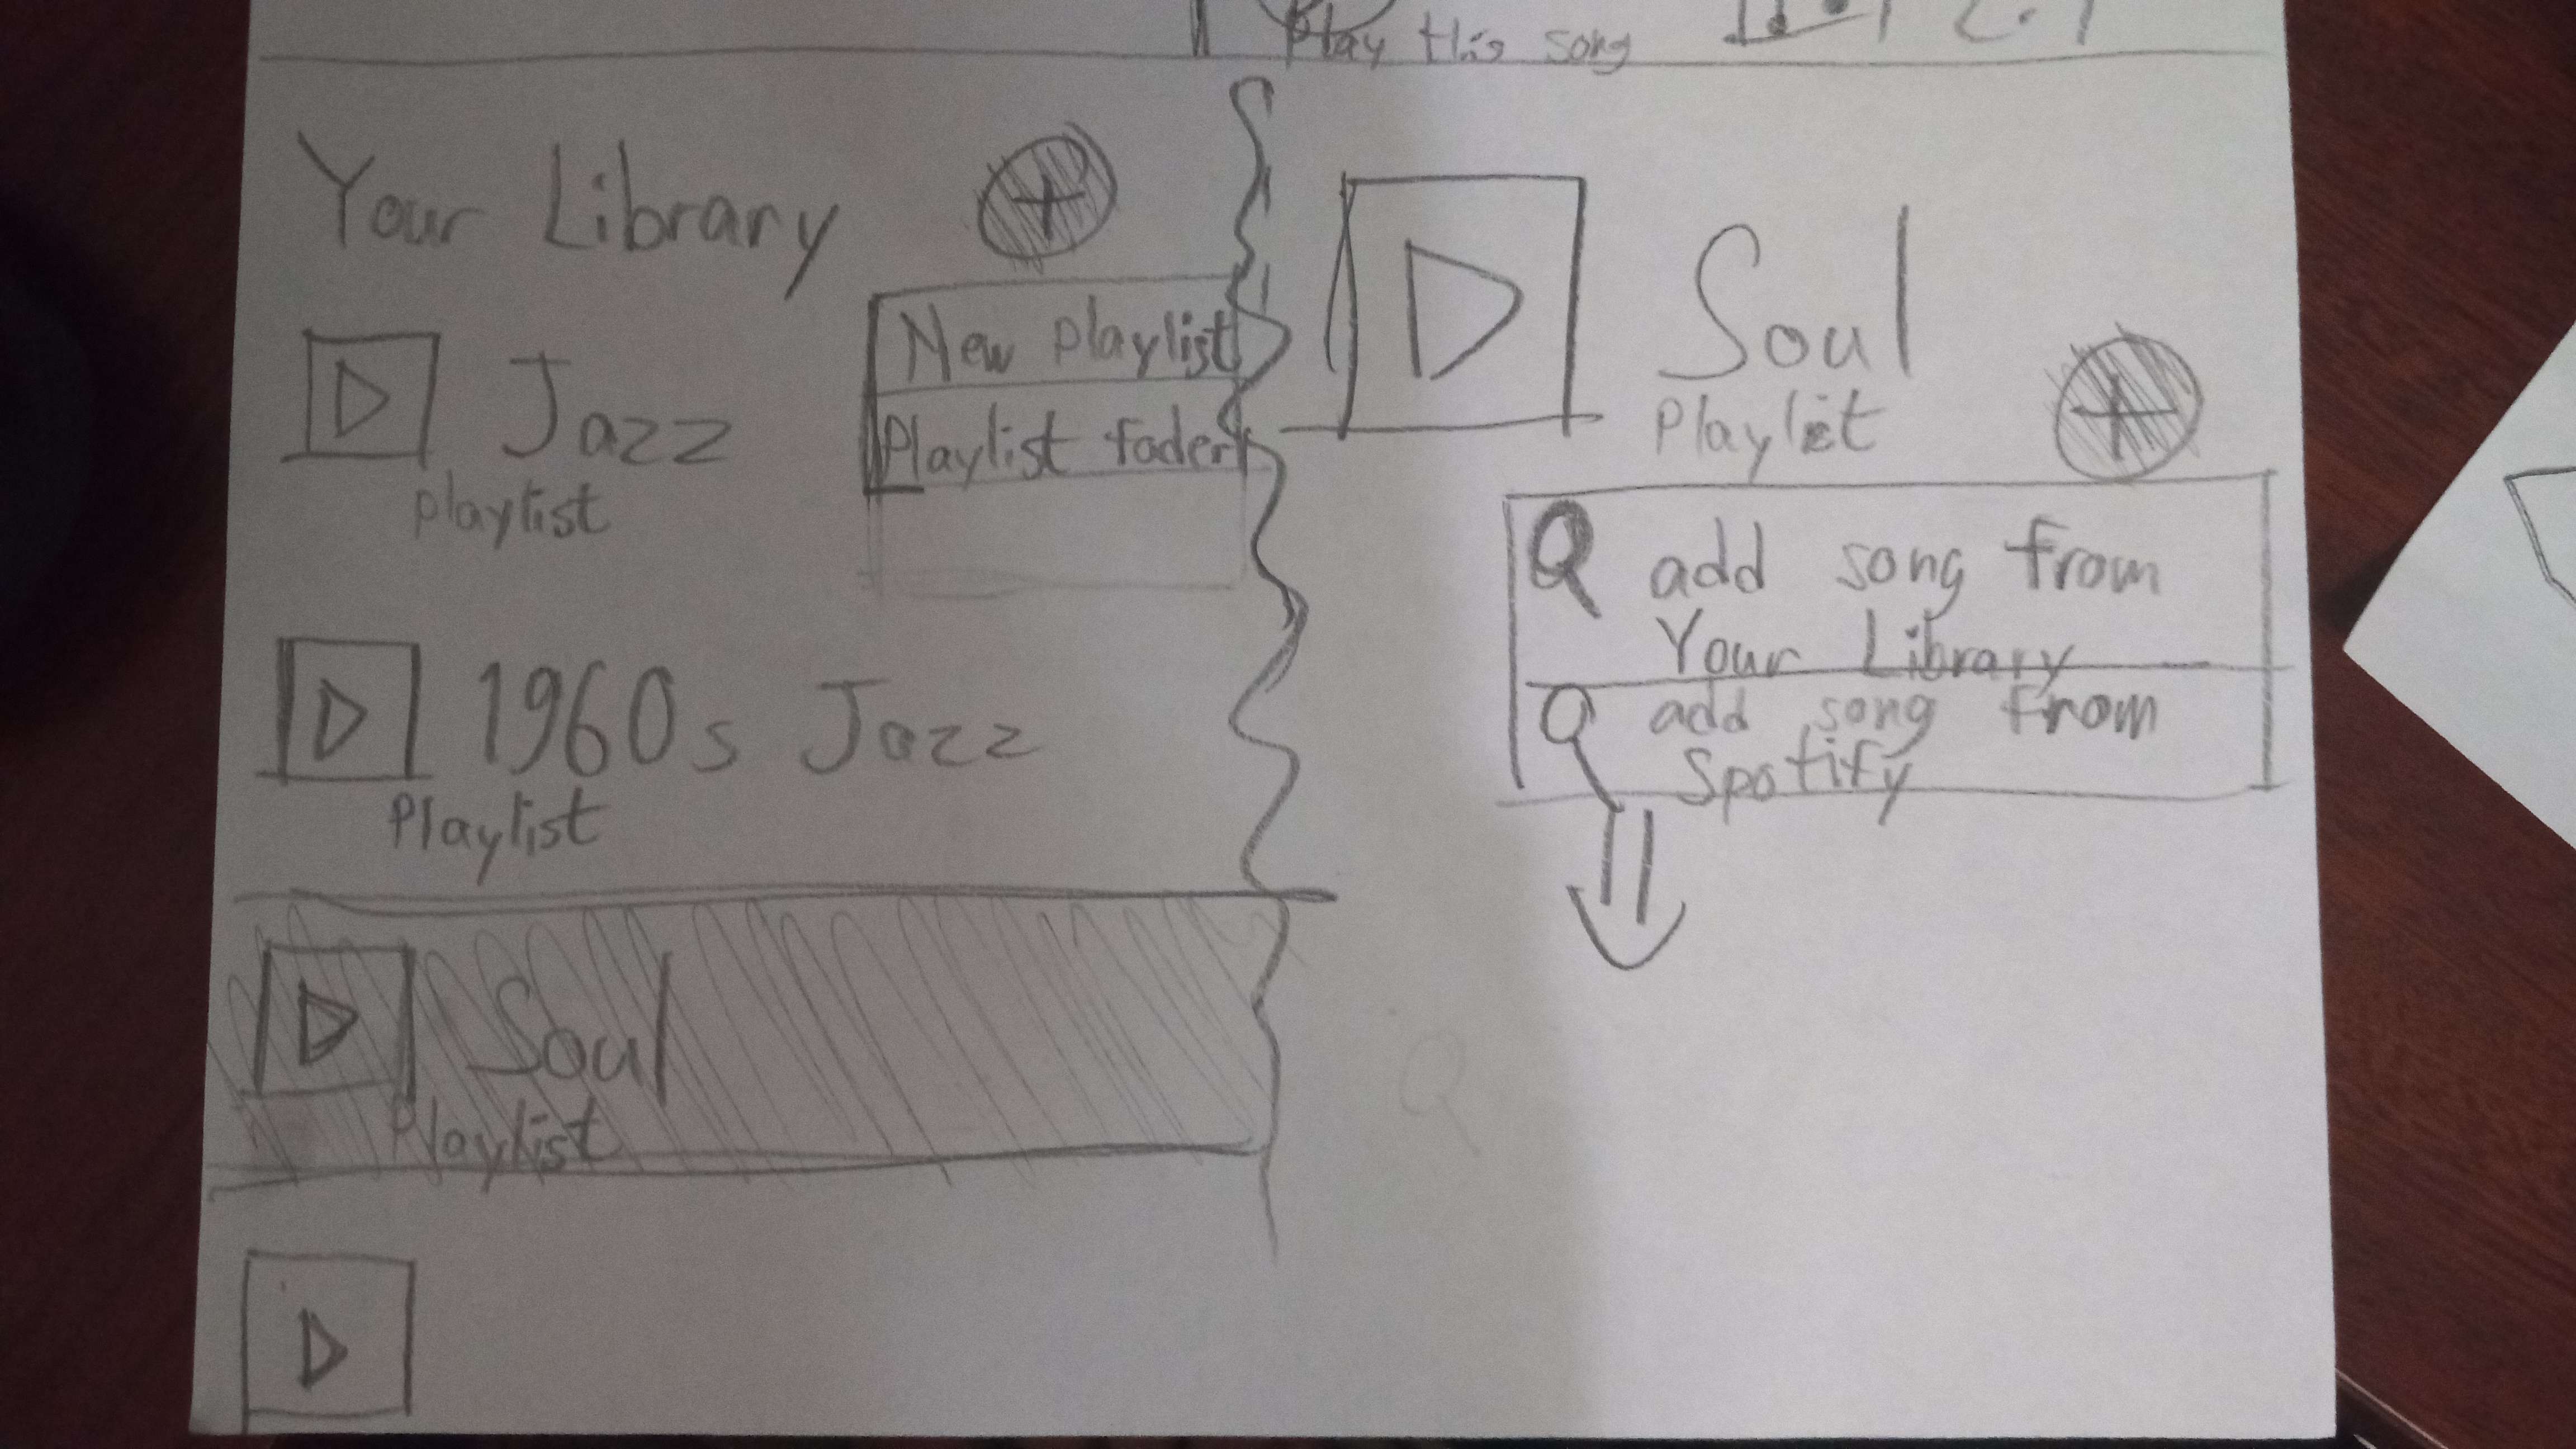 Play this song
Your Library
+
New playlist
Playlist foder
Jazz
playlist
1960s Jazz
Playlist
Soul
Playlist
Soul
Playlist
+
add song from
Your Library
add song from
Spotify